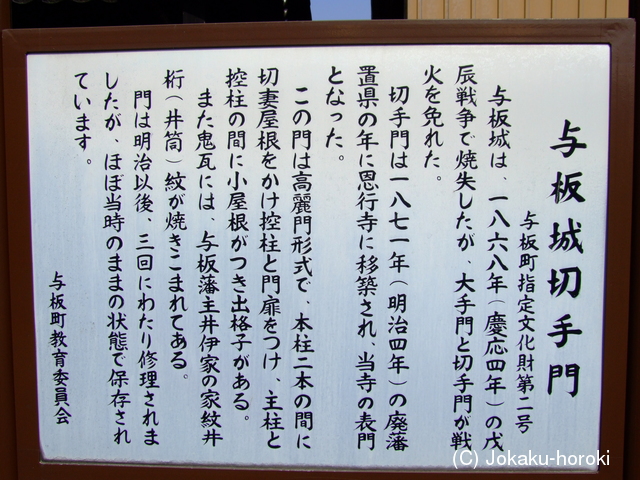 与板城切手門
与板町指定文化財第二号
与板城は、一八六八年(慶応四年)の戊
辰戦争で焼失したが、大手門と切手門が戦
火を免れた。
切手門は一八七一年(明治四年)の廃藩
置県の年に恩行寺に移築され、当寺の表門
となった。
この門は高麗門形式で、本柱二本の間に
切妻屋根をかけ控柱と門扉をつけ、主柱と
控柱の間に小屋根がつき出格子がある。
また鬼瓦には、与板藩主井伊家の家紋井
桁(井筒)紋が焼きこまれてある。
門は明治以後、三回にわたり修理されま
したが、ほぼ当時のままの状態で保存され
ています。
与板町教育委員会
(C) Jokaku-horoki